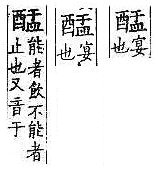 宴
也
宴
也
能者飲不能者
止也又音于